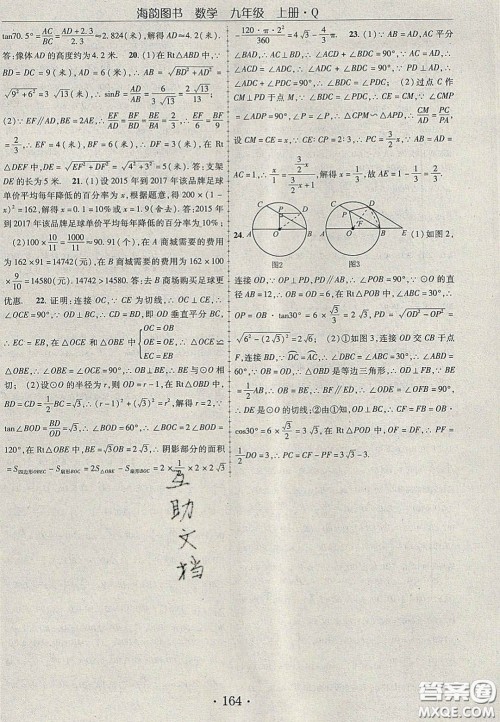 海韵图书 数学 九年级 上册·Q
tan70.5°=AC/BC=(AD+2.3)/2.3≈2.824(米),解得AD≈4.2
米. 答:像体AD的高度约为4.2米. 20.(1)在Rt△ABD中,∵
BD=DC=9(米),AD=6(米),∴AB=√(BD²+AD²)=
√(9²+6²)=3√13(米),∴sinB=AD/AB=6/(3√13)=2√13/13;
(2)∵EF∥AD,BE=2AE,∴EF/AD=BF/BD=BE/BA=
2/3,∴EF/6=BF/9=2/3,∴EF=4(米),BF=6(米),∴DF=3(米),
在Rt△DEF中,DE=√(EF²+DF²)=√(4²+3²)=5(米). 答:支架
DE的长为5米. 21.(1)设2015年到2017年该品牌足球
单价平均每年降低的百分率为x,根据题意,得200×(1
-x)²=162,解得x=0.1=10%或x=1.9(舍去). 答:2015
年到2017年该品牌足球单价平均每年降低的百分率为10%;
(2)100×10/11=1000/11≈90.91(个),在A商城需要的费用
为162×91=14742(元),在B商城需要的费用为162×100
×9/10=14580(元). 14742>14580. 答:去B商场购买足球更
优惠. 22.证明:连接OC,∵CE为切线,∴OC⊥CE,∴
∠OCE=90°,∵OD⊥BC,∴CD=BD,即OD垂直平分BC,
∴EC=EB,在△OCE和△OBE中{OC=OB OE=OE EC=EB,∴
△OBE≌△OCE,∴∠OBE=∠OCE=90°,∴BE与⊙O相
切;(2)设⊙O的半径为r,则OD=r-1,在Rt△OBD中,
BD=CD=1/2BC=√3,∴(r-1)²+(√3)²=r²,解得r=2,∵
tan∠BOD=BD/OD=√3,∴∠BOD=60°,∴∠BOC=2∠BOD
=120°,在Rt△OBE中,BE=√3OB=2√3,∴阴影部分的面积
=S四边形OBEC-S扇形BOC=2S△OBE-S扇形BOC=2×1/2×2×2√3
120·π·2²/360=4√3-4/3π. 23.(1)∵AB=AC,AD平分
∠BAD,∴∠PAC=∠PBC,∵∠ADC=∠BDC=90°,∴
∠ACB=∠BDC=90°,∴∠BDF=∠ADP;(2)过点C作
CM⊥PD于点M,∵∠CPM=∠APD,∠CMP
=∠ADP=90°,∴△CPM∽△APD,∴CM/AD=PC/PA,
设CM=CE=x,∵CE:CP=2:3,∴PC=3/2x,∵AB=AD=
AC=1,∴x/1=(3/2x)/(3/2x+1),解得:x=1/3,故AE=1+1/3=4/3.
24.
O
P
B
C
D
图2
图3
(1)如图2,
连接OD,∵OP⊥PD,PD∥AB,∴∠POB=90°,∵⊙O的直
径为12,∴OB=OD=6,在Rt△POB中,∠ABC=30°,∴OP=
OB·tan30°=6×√3/3=2√3,在Rt△POD中,PD=√(OD²-OP²)=
√(6²-(2√3)²)=2√6;(2)①如图3,连接OD交CB于点
F,连接BD,∵DC=AC,∴∠DBC=∠ABC=30°,∴∠ABD
=60°,∵OB=OD,∴△OBD是等边三角形,∴OD⊥FB,∵
BE=1/2AB,∴OB=BE,∴BF∥ED,∴∠ODE=∠OFB=
90°,∴DE是⊙O的切线;②由①知,OD⊥BC,∴CF=OB·
cos30°=6×√3/2=3√3,在Rt△POD中,OF=DF,∴PF=
1/2DO=3,∴PC=CF-PF=3√3-3.
互
助
文
档
164
答案圈
MXQE.COM